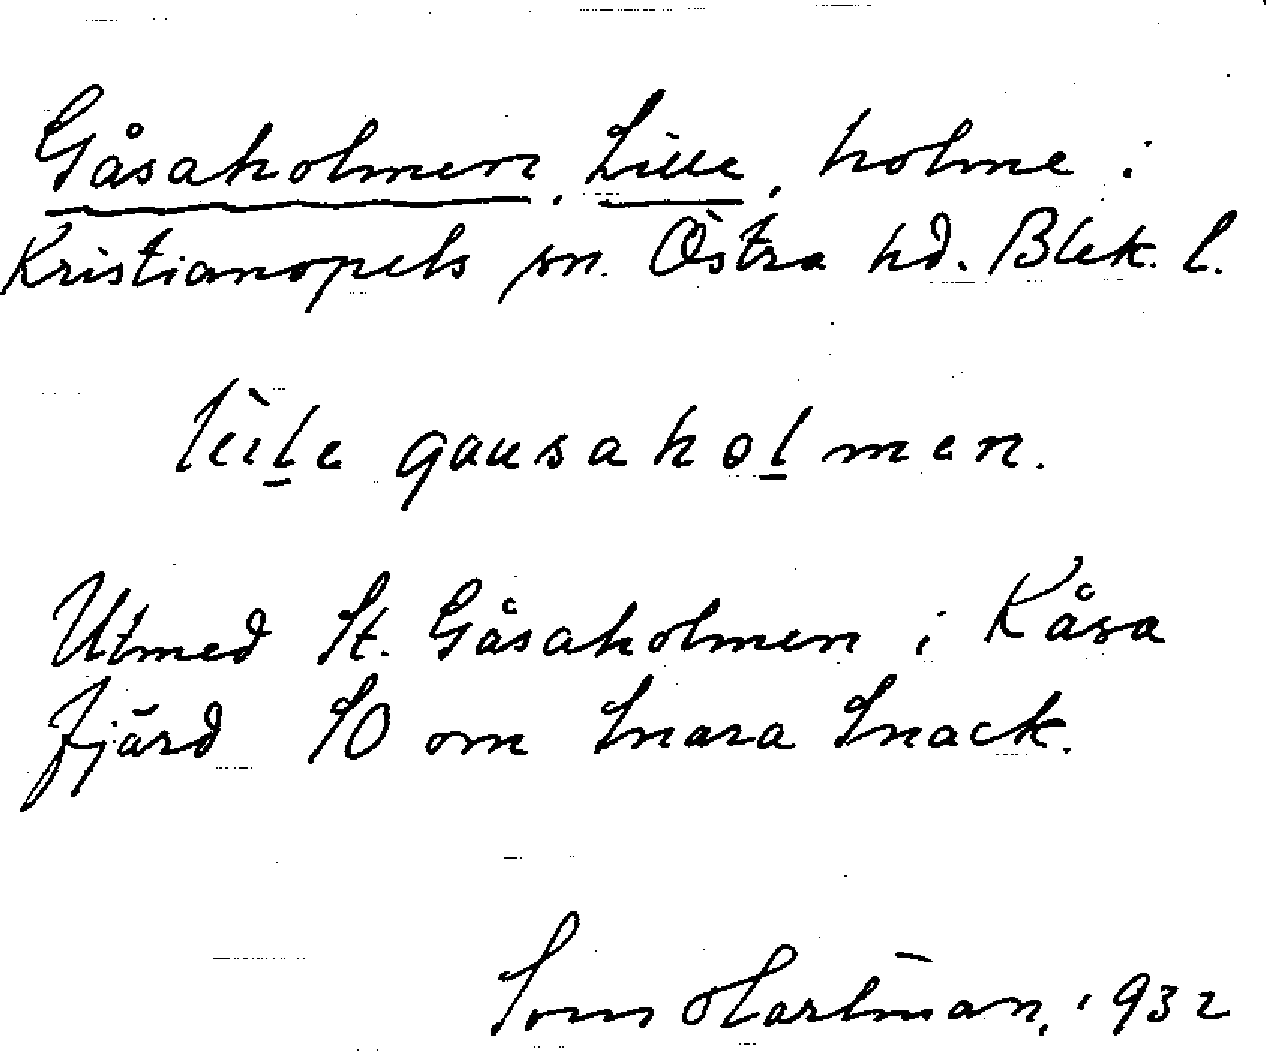 Gåsaholmen, Lille, holme i
Kristianopels sn. Östra hd. Blek. l.
gausaholmen.
Utmed St. Gåsaholmen i Kåsa
fjärd SO om Snara Snack.
Hartman, 1932